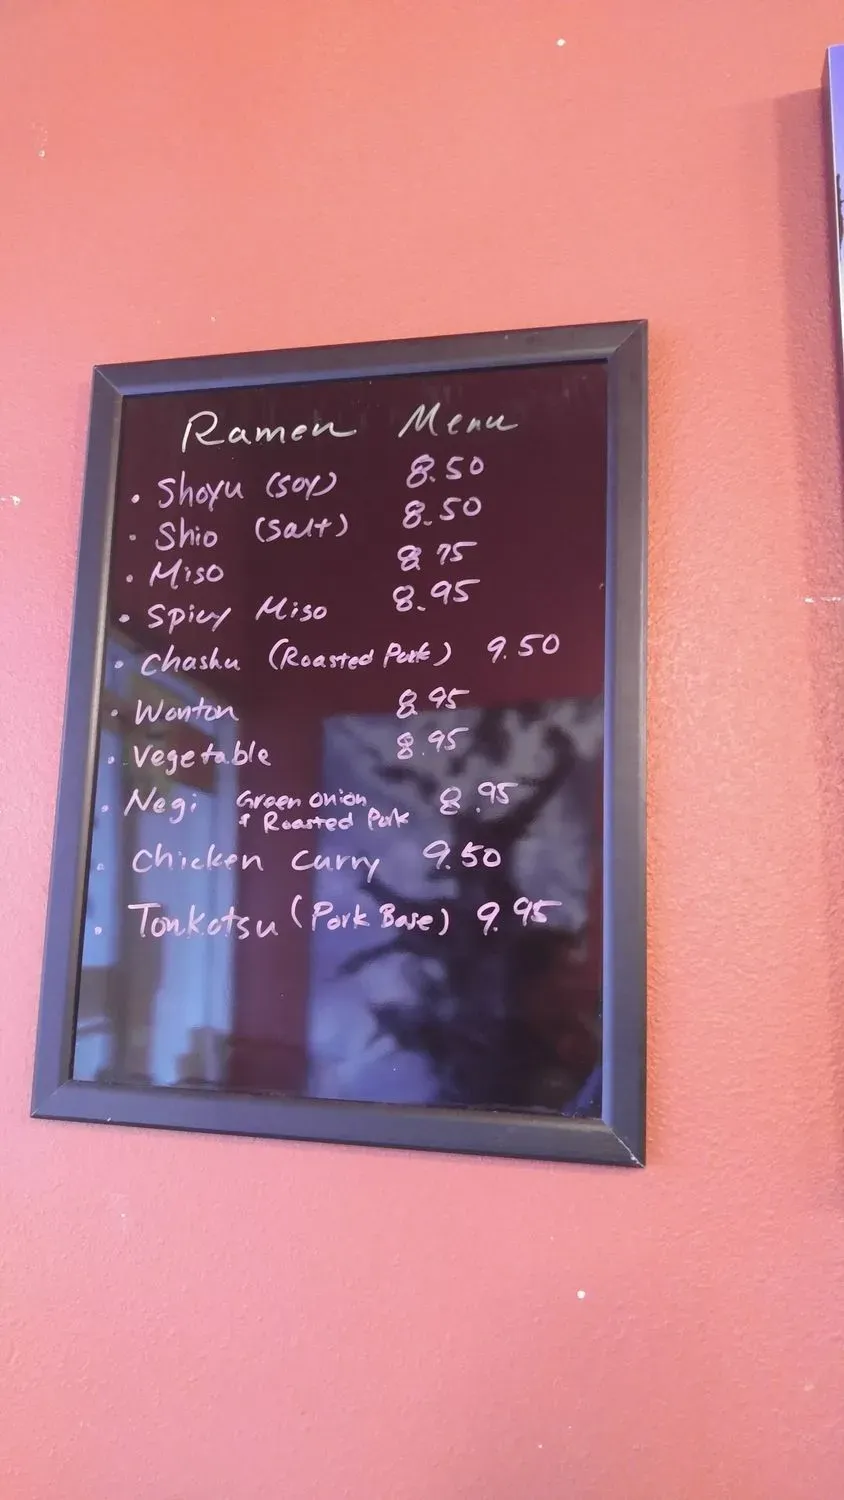 Ramen Menu
• Shoyu (soy) 8.50
• Shio (Salt) 8.50
• Miso 8.75
• Spicy Miso 8.95
• Chashu (Roasted Pork) 9.50
• Wonton 8.95
• Vegetable 8.95
• Negi Green onion 8.95
& Roasted Pork
• Chicken Curry 9.50
• Tonkotsu (Pork Base) 9.95